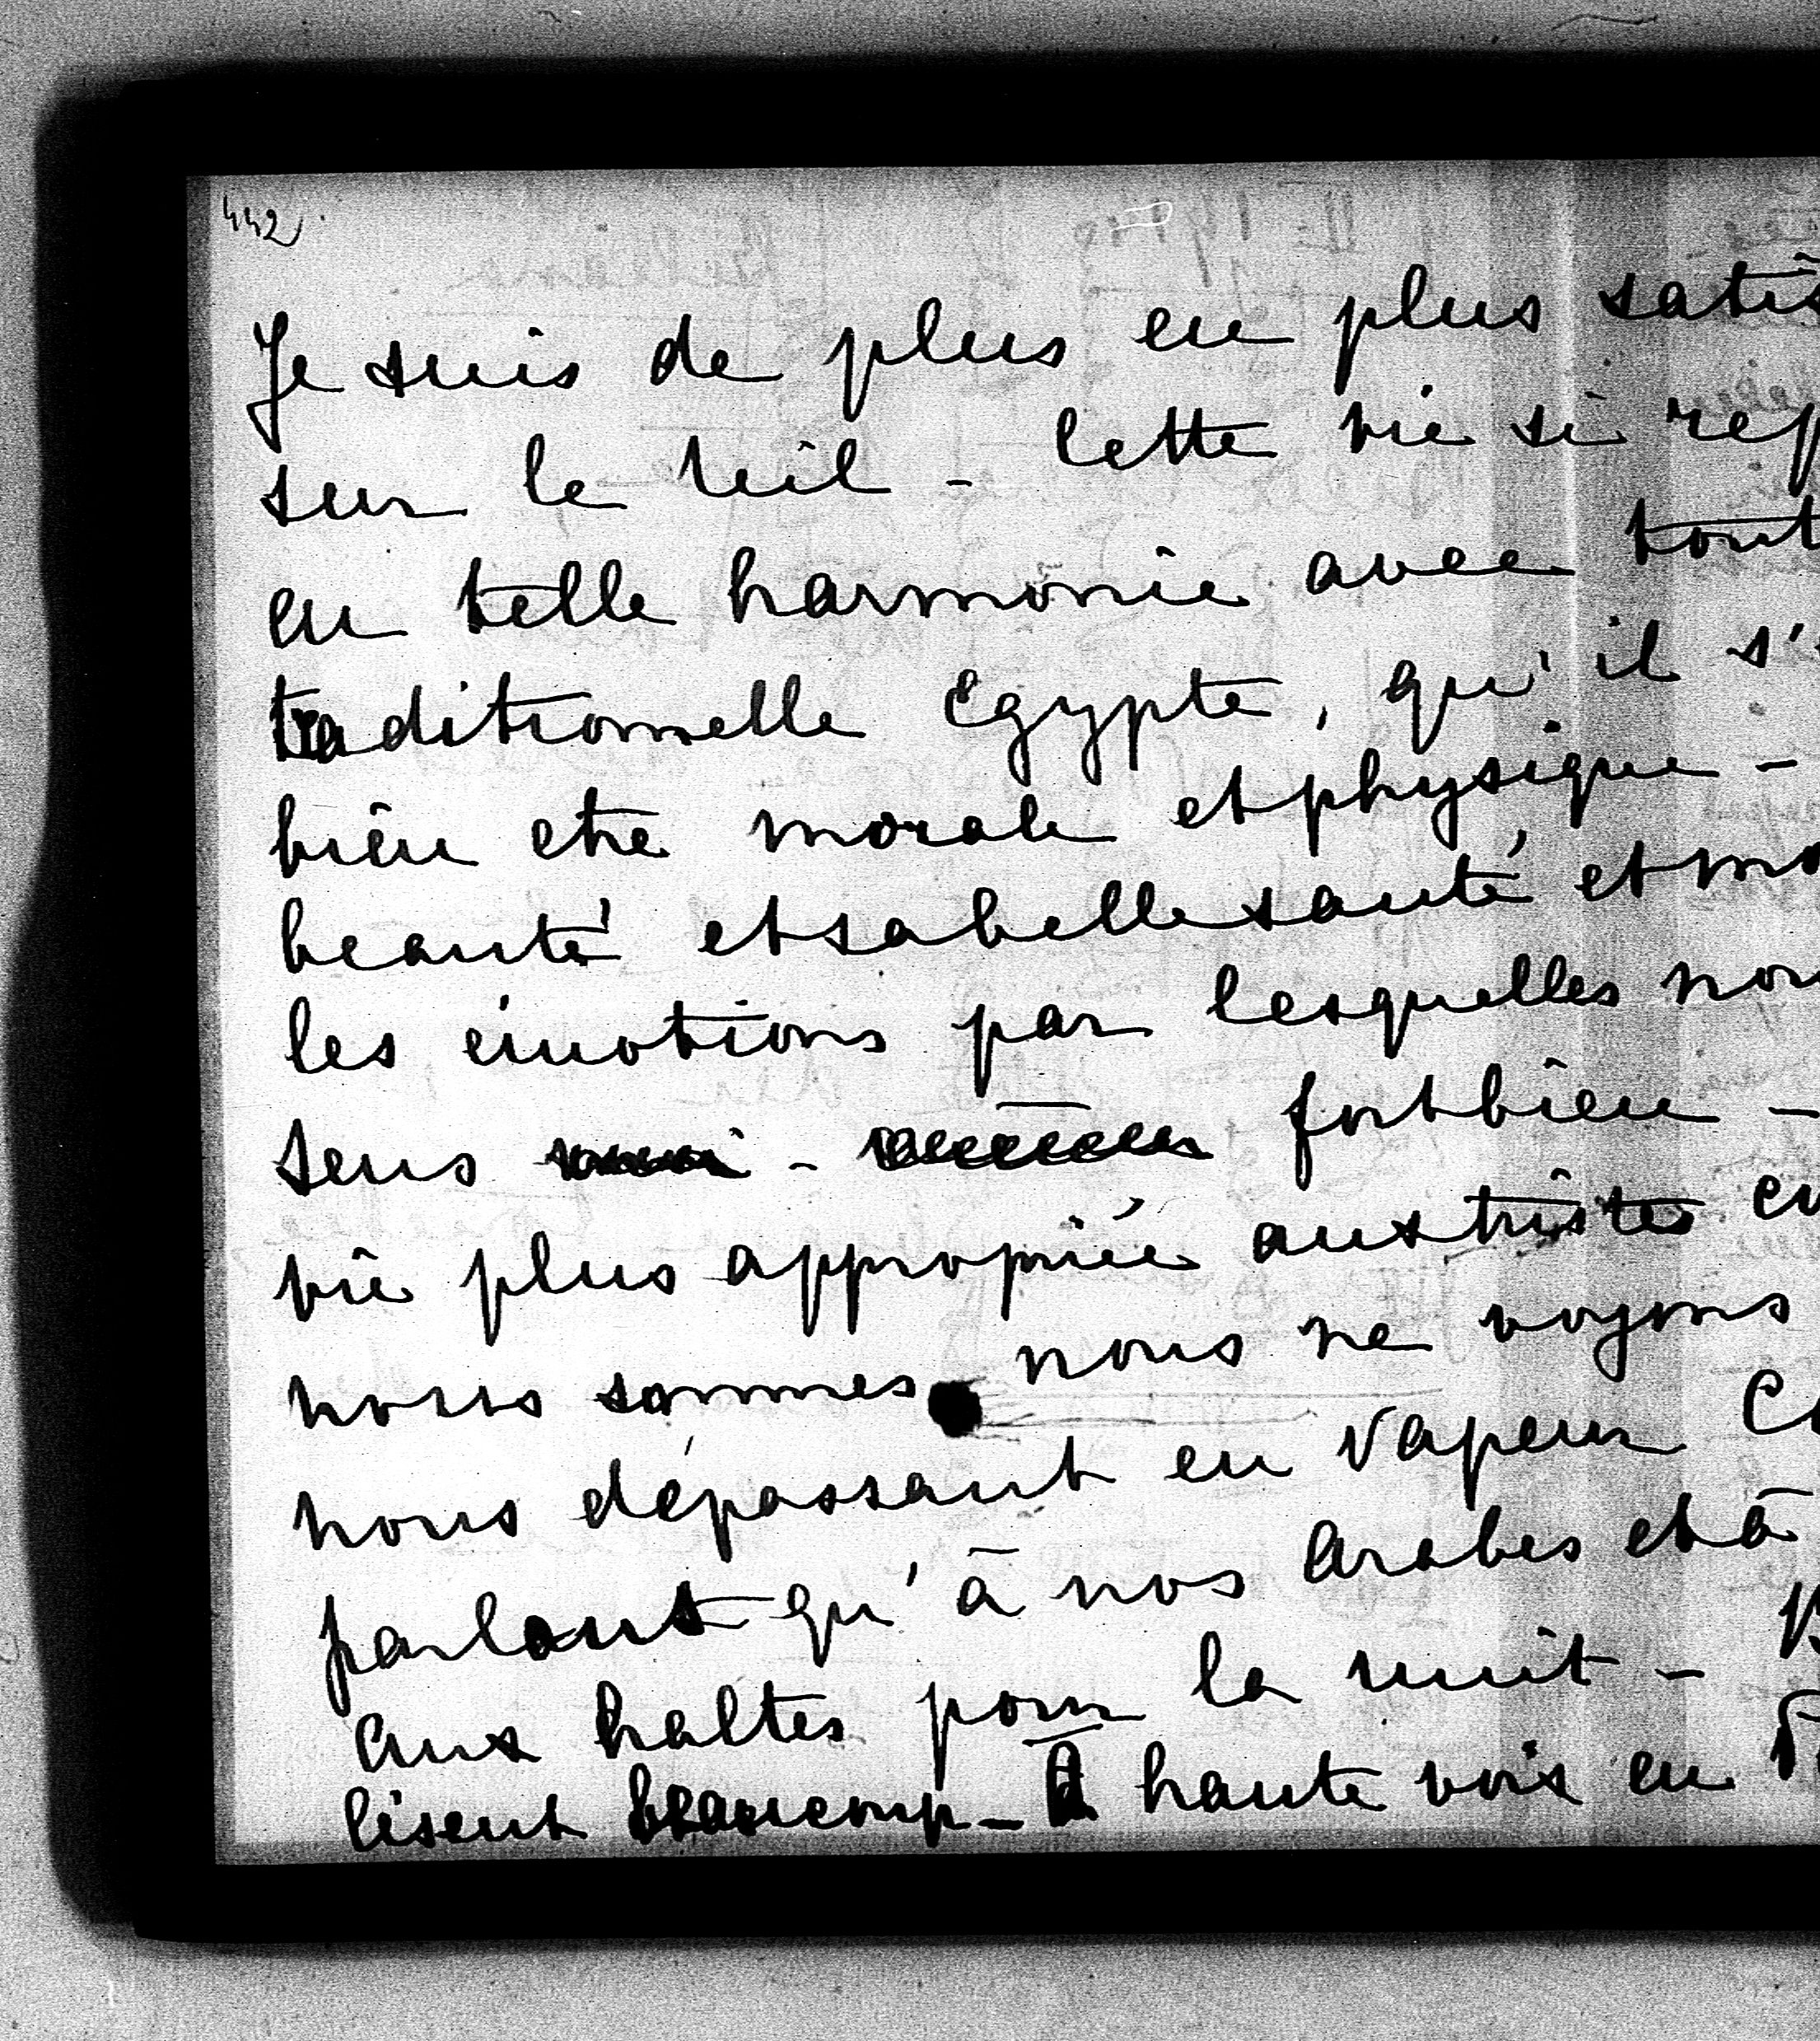 442
Je suis de plus en plus satis
sur le Nil - Cette vie si rep
en telle harmonie avec tout
traditionnelle Egypte, qu'il s'
bien etre morale et physique -
beauté et sa belle santé et mo
les émotions par lesquelles nou
sens fort bien -
vie plus appropriée aux tristes
nous sommes nous ne voyons
nous dépassant en vapeur
parlant qu'à nos Arabes et à
aux haltes pour la nuit -
lisent beaucoup - à haute voix en